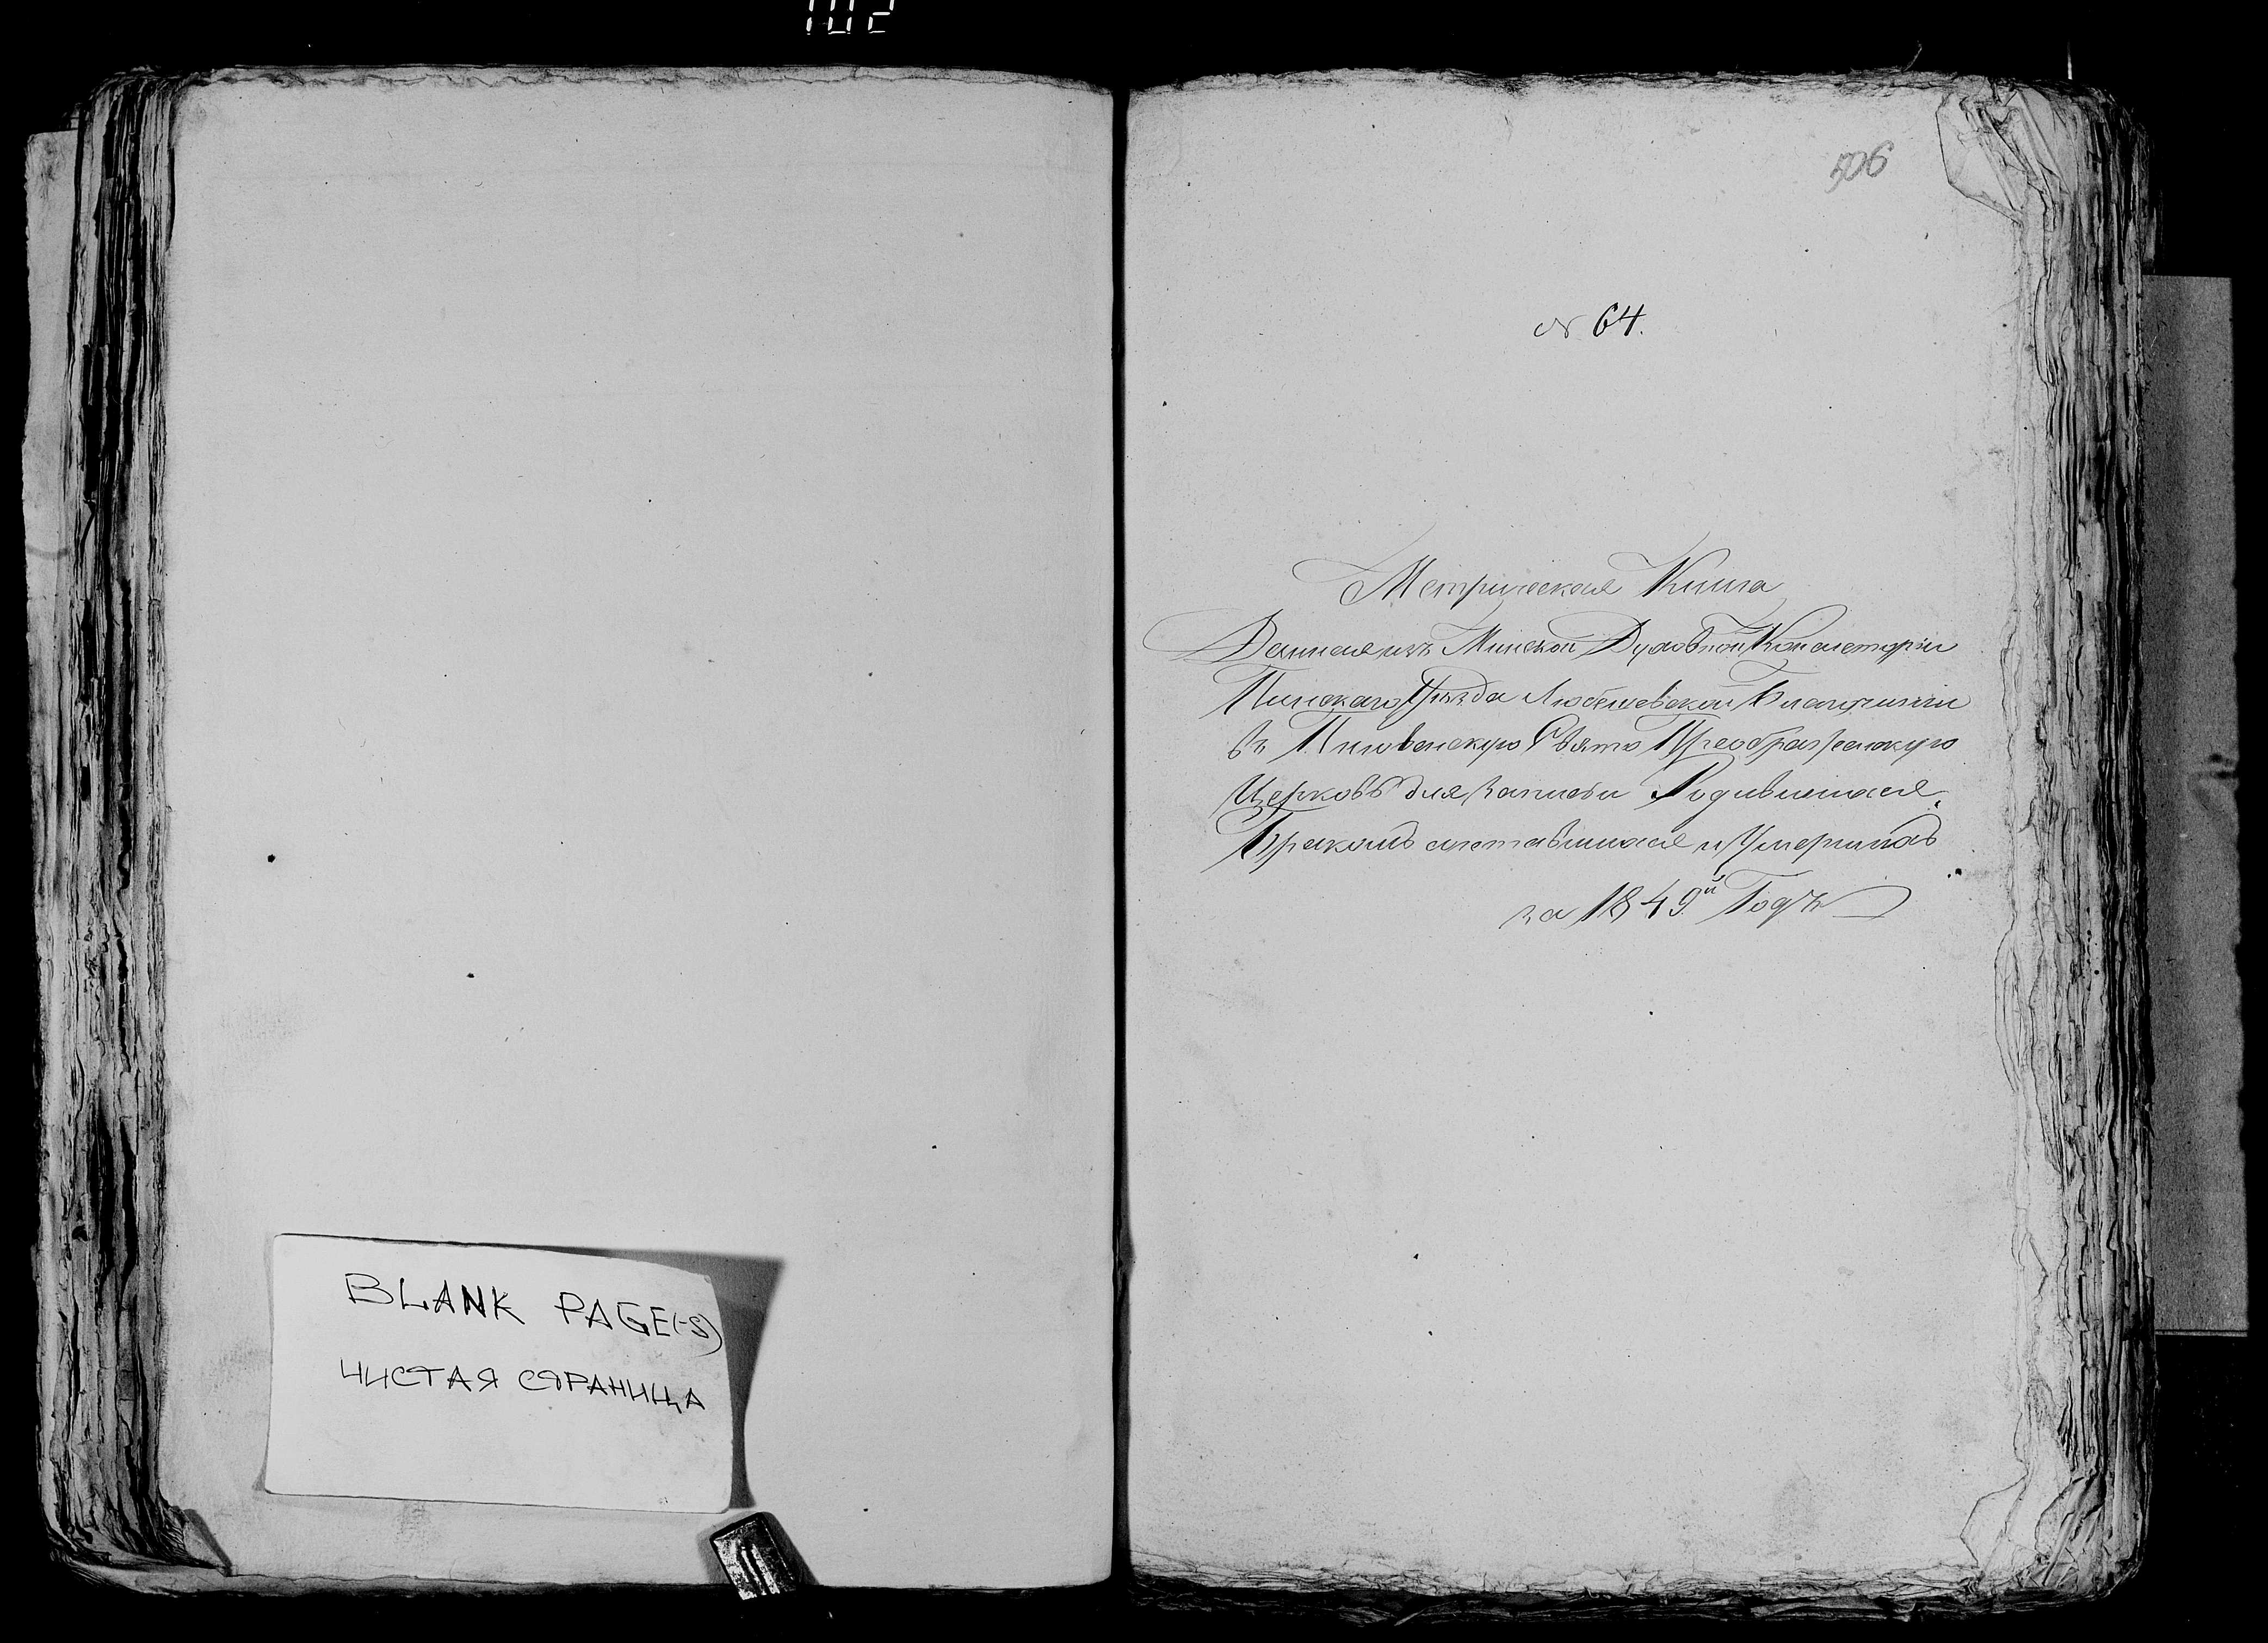 102
BLANK PAGE(-S)
ЧИСТАЯ СТРАНИЦА
506
№ 64.
Метрическая Книга
Данная изъ Минской Духовной Консисторіи
Пинскаго Уѣзда Любешевской Благочиніи
въ Пневскую Свято Преображенскую
Церковь для записки Родившихся,
Бракомъ сочетавшихся и Умершихъ
за 1849й Годъ